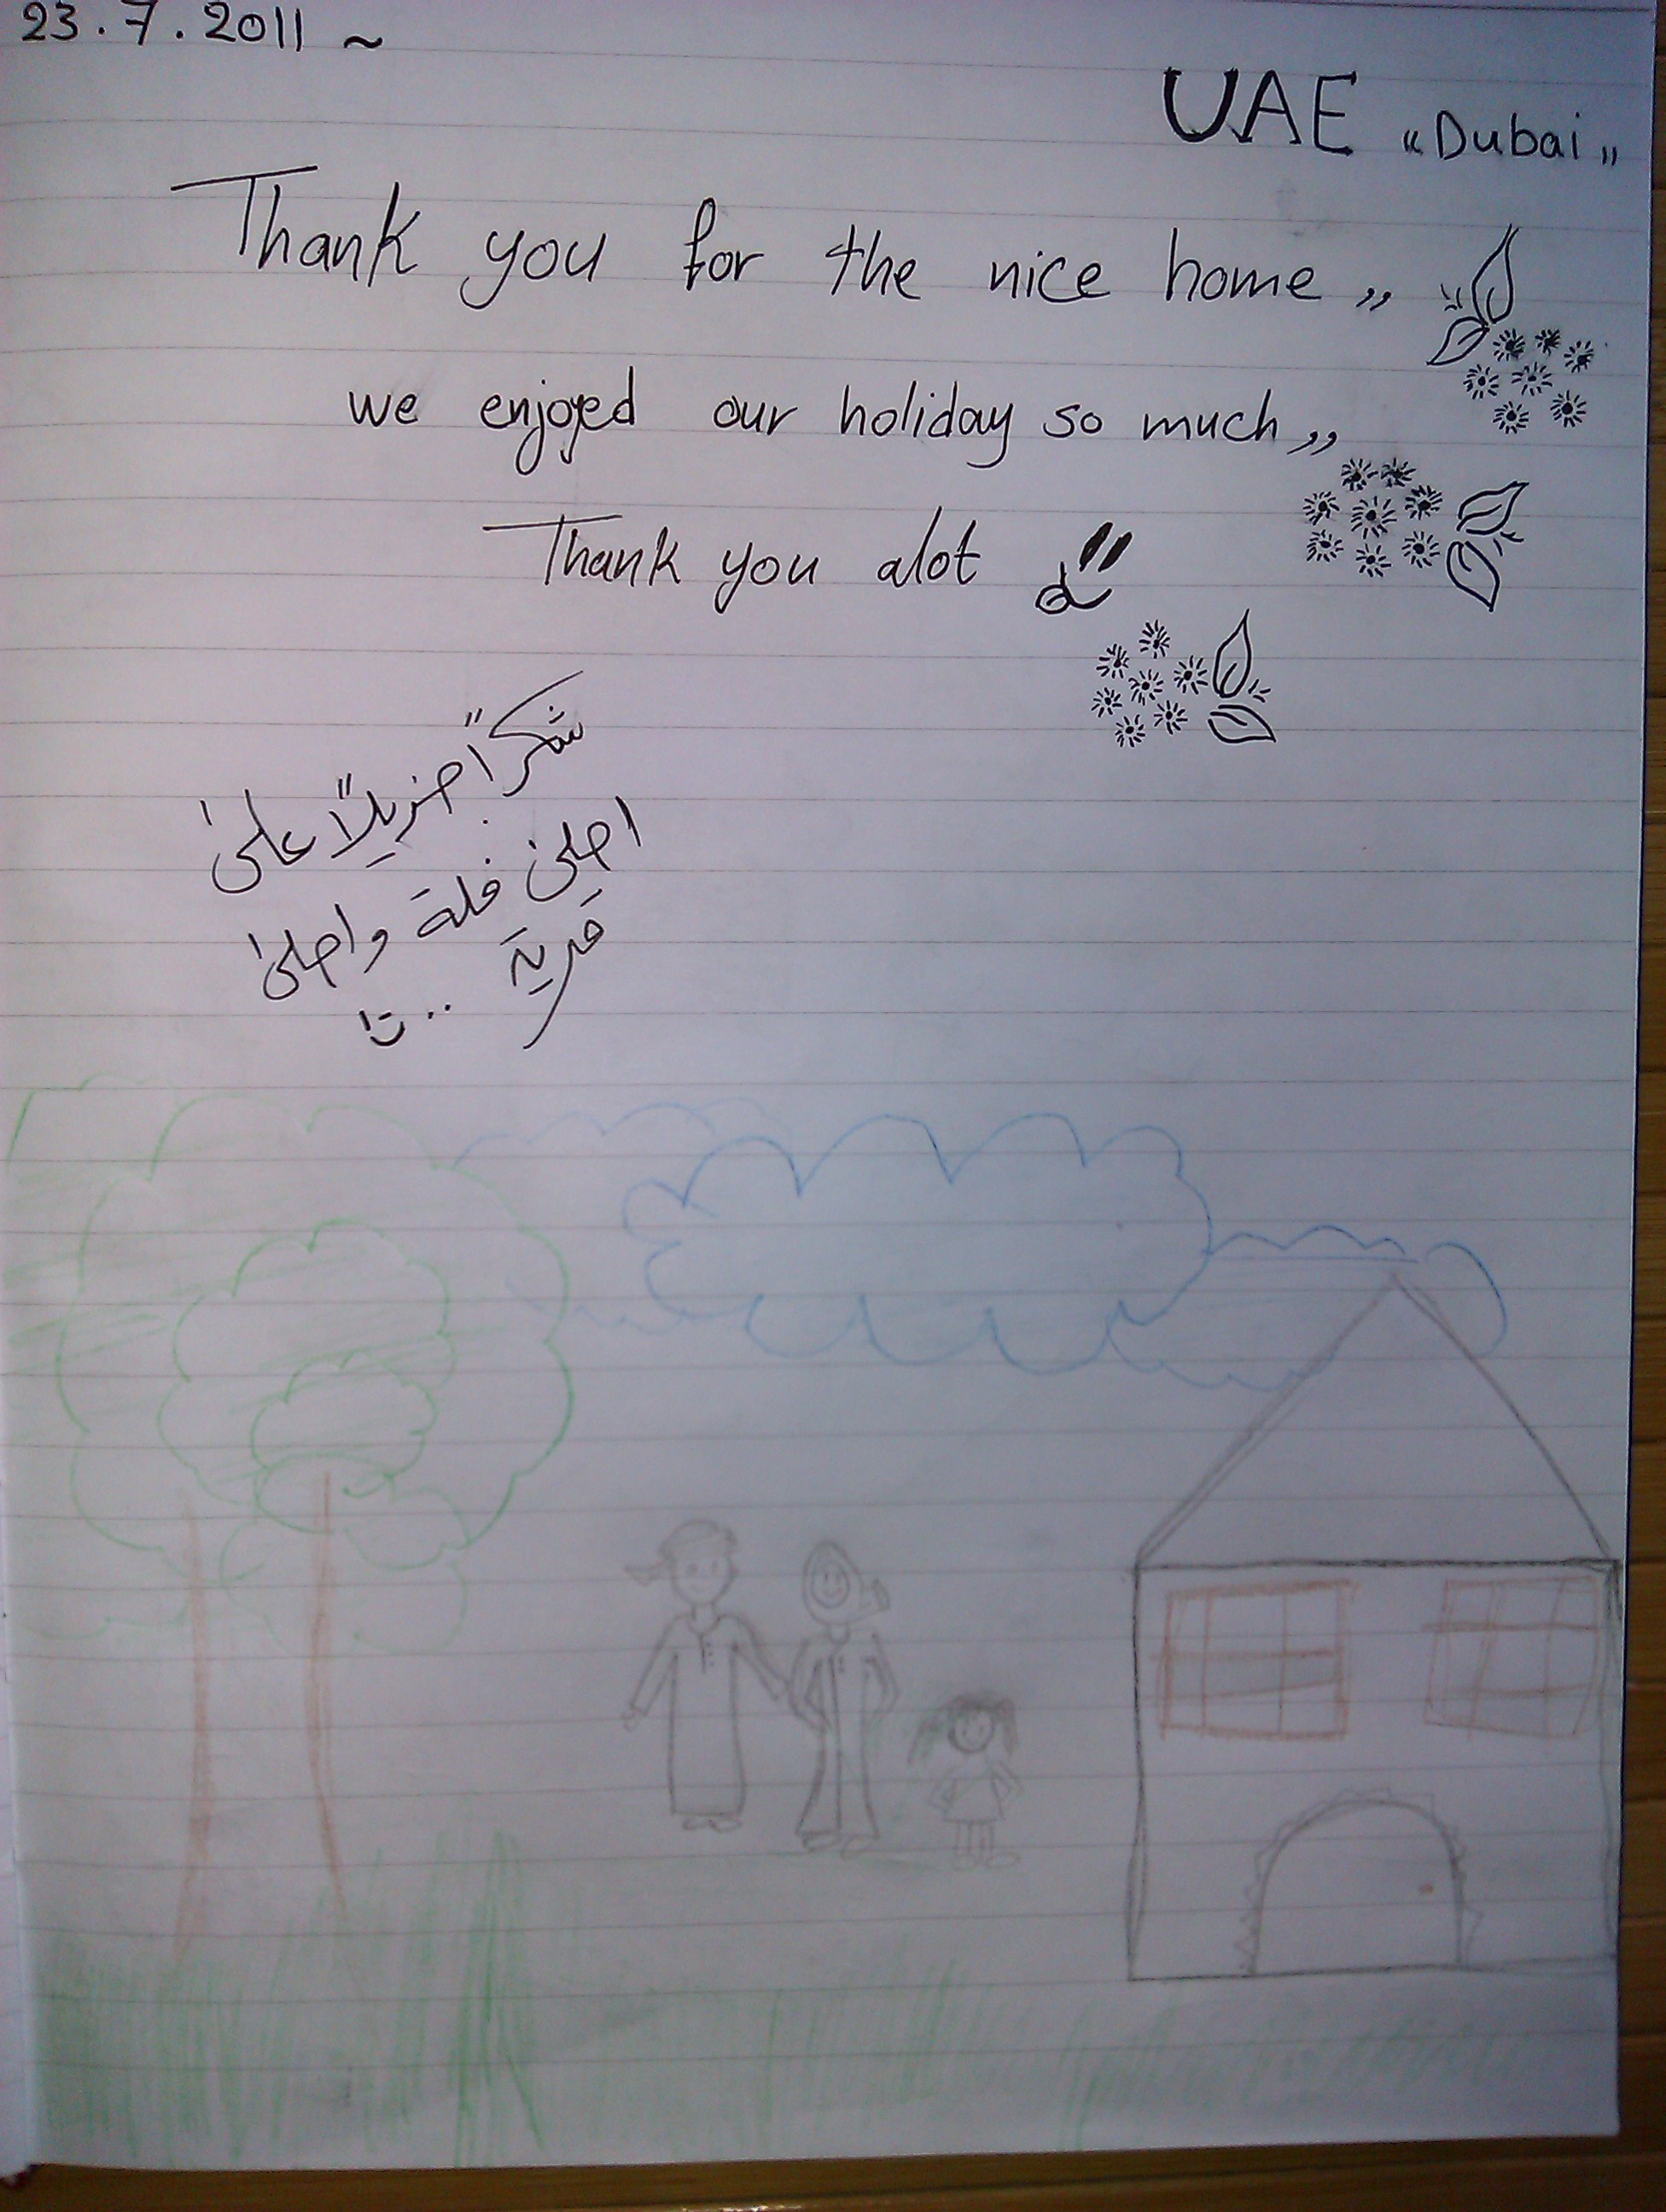 23.7.2011 ~
UAE "Dubai"
Thank you for the nice home,,
we enjoyed our holiday so much,,
Thank you alot
شكراً جزيلاً على
احلى فلة واحلى
قرية ..